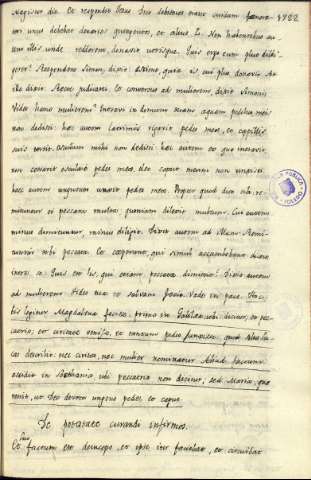 Magister dic. Et respondit Jesus Duo debitores erant cuidam foenera- 1722
tori unus debebat denarios quingentos, et alius L. Non habentibus au-
tem illis unde redderent, donavit utrisque. Quis ergo eum plus dili-
geret? Respondens Simon, dixit: Estimo, quia is cui plus donavit. At
ille dixit Recte judicasti. Et conversus ad mulierem, dixit Simoni
Vides hanc mulierem? Intravi in domum tuam aquam pedibus meis
non dedisti: haec autem lacrimis rigavit pedes meos, et capillis
suis tersit. Osculum mihi non dedisti: haec autem ex quo intravit
non cessavit osculari pedes meos, oleo caput meum non unxisti:
haec autem unguento unxit pedes meos. Propter quod dico tibi: re-
mittuntur ei peccata multa quoniam dilexit multum. Cui autem
minus dimittitur, minus diligit. Dixit autem ad illam: Remit-
tuntur tibi peccata. Et coeperunt, qui simul accumbebant dicere
intra se: Quis est hic, qui etiam peccata dimittit? Dixit autem
ad mulierem Fides tua te salvam fecit. Vade in pace. Hac-
legitur Magdalena
describit: nec civitas, nec mulier nominatur. Aliud factum
accidit in Bethania ubi peccatrix non dicitur, sed Maria,
pedes et caput
De potestate curandi infirmos.
Et factum est deinceps, et ipse iter faciebat, et circuibat